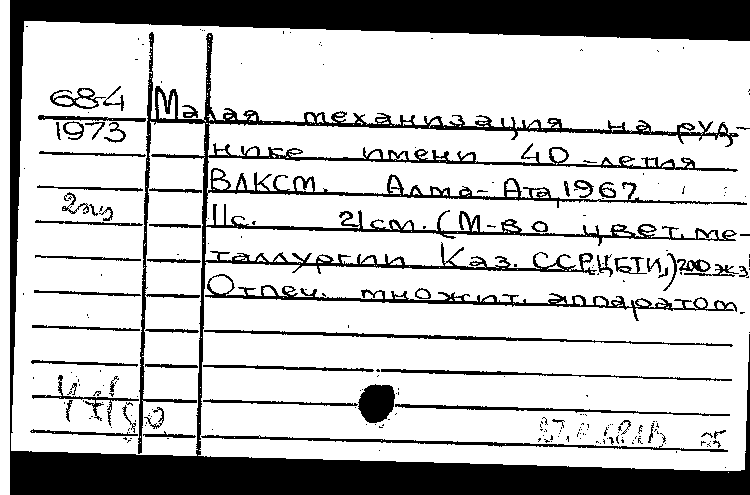 68-4
1973
2экз
Малая механизация на руд-
нике имени 40-летия
ВЛКСМ. Алма-Ата, 1967.
11с. 21см. (М-во цвет. ме-
таллургии Каз. ССР, ЦБТИ,) 200 экз
Отпеч. множит. аппаратом.